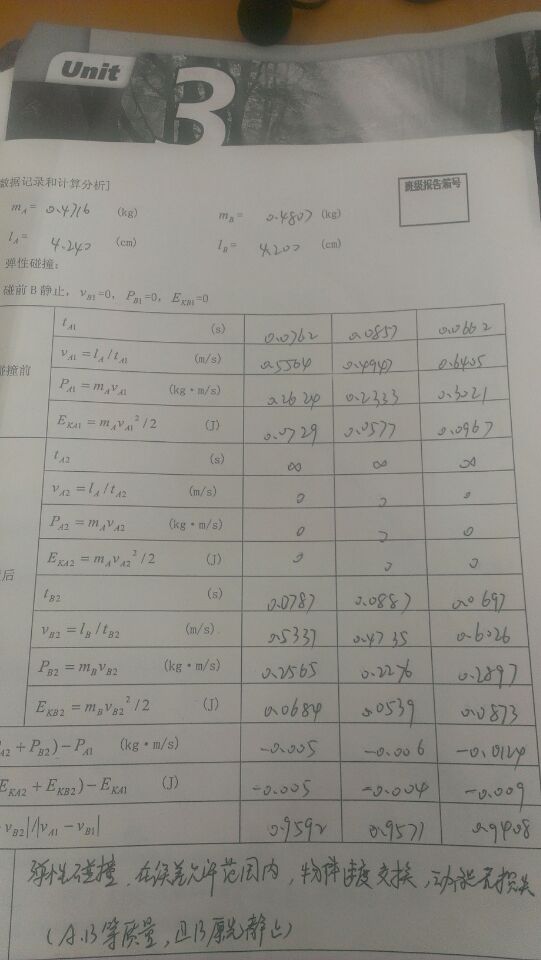 Unit
3
数据记录和计算分析]
班级报告编号
m_A= 0.4716 (kg) m_B= 0.4807 (kg)
l_A= 4.240 (cm) l_B= 4.200 (cm)
弹性碰撞：
碰前 B 静止，v_B1=0，P_B1=0，E_KB1=0
碰撞前
t_A1 (s) 0.0762 0.0857 0.0662
v_A1 = l_A / t_A1 (m/s) 0.5564 0.4947 0.6405
P_A1 = m_A v_A1 (kg·m/s) 0.2624 0.2333 0.3021
E_KA1 = m_A v_A1² / 2 (J) 0.0729 0.0577 0.0967
后
t_A2 (s) ∞ ∞ ∞
v_A2 = l_A / t_A2 (m/s) 0 0 0
P_A2 = m_A v_A2 (kg·m/s) 0 0 0
E_KA2 = m_A v_A2² / 2 (J) 0 0 0
t_B2 (s) 0.0787 0.0887 0.0697
v_B2 = l_B / t_B2 (m/s) 0.5337 0.4735 0.6026
P_B2 = m_B v_B2 (kg·m/s) 0.2565 0.2276 0.2897
E_KB2 = m_B v_B2² / 2 (J) 0.0684 0.0539 0.0873
A2 + P_B2) − P_A1 (kg·m/s) -0.005 -0.006 -0.0124
E_KA2 + E_KB2) − E_KA1 (J) -0.005 -0.004 -0.009
v_B2|/|v_A1 − v_B1| 0.9592 0.9571 0.9408
弹性碰撞，在误差允许范围内，物体速度交换，动能无损失
(A.B等质量，且B原先静止)